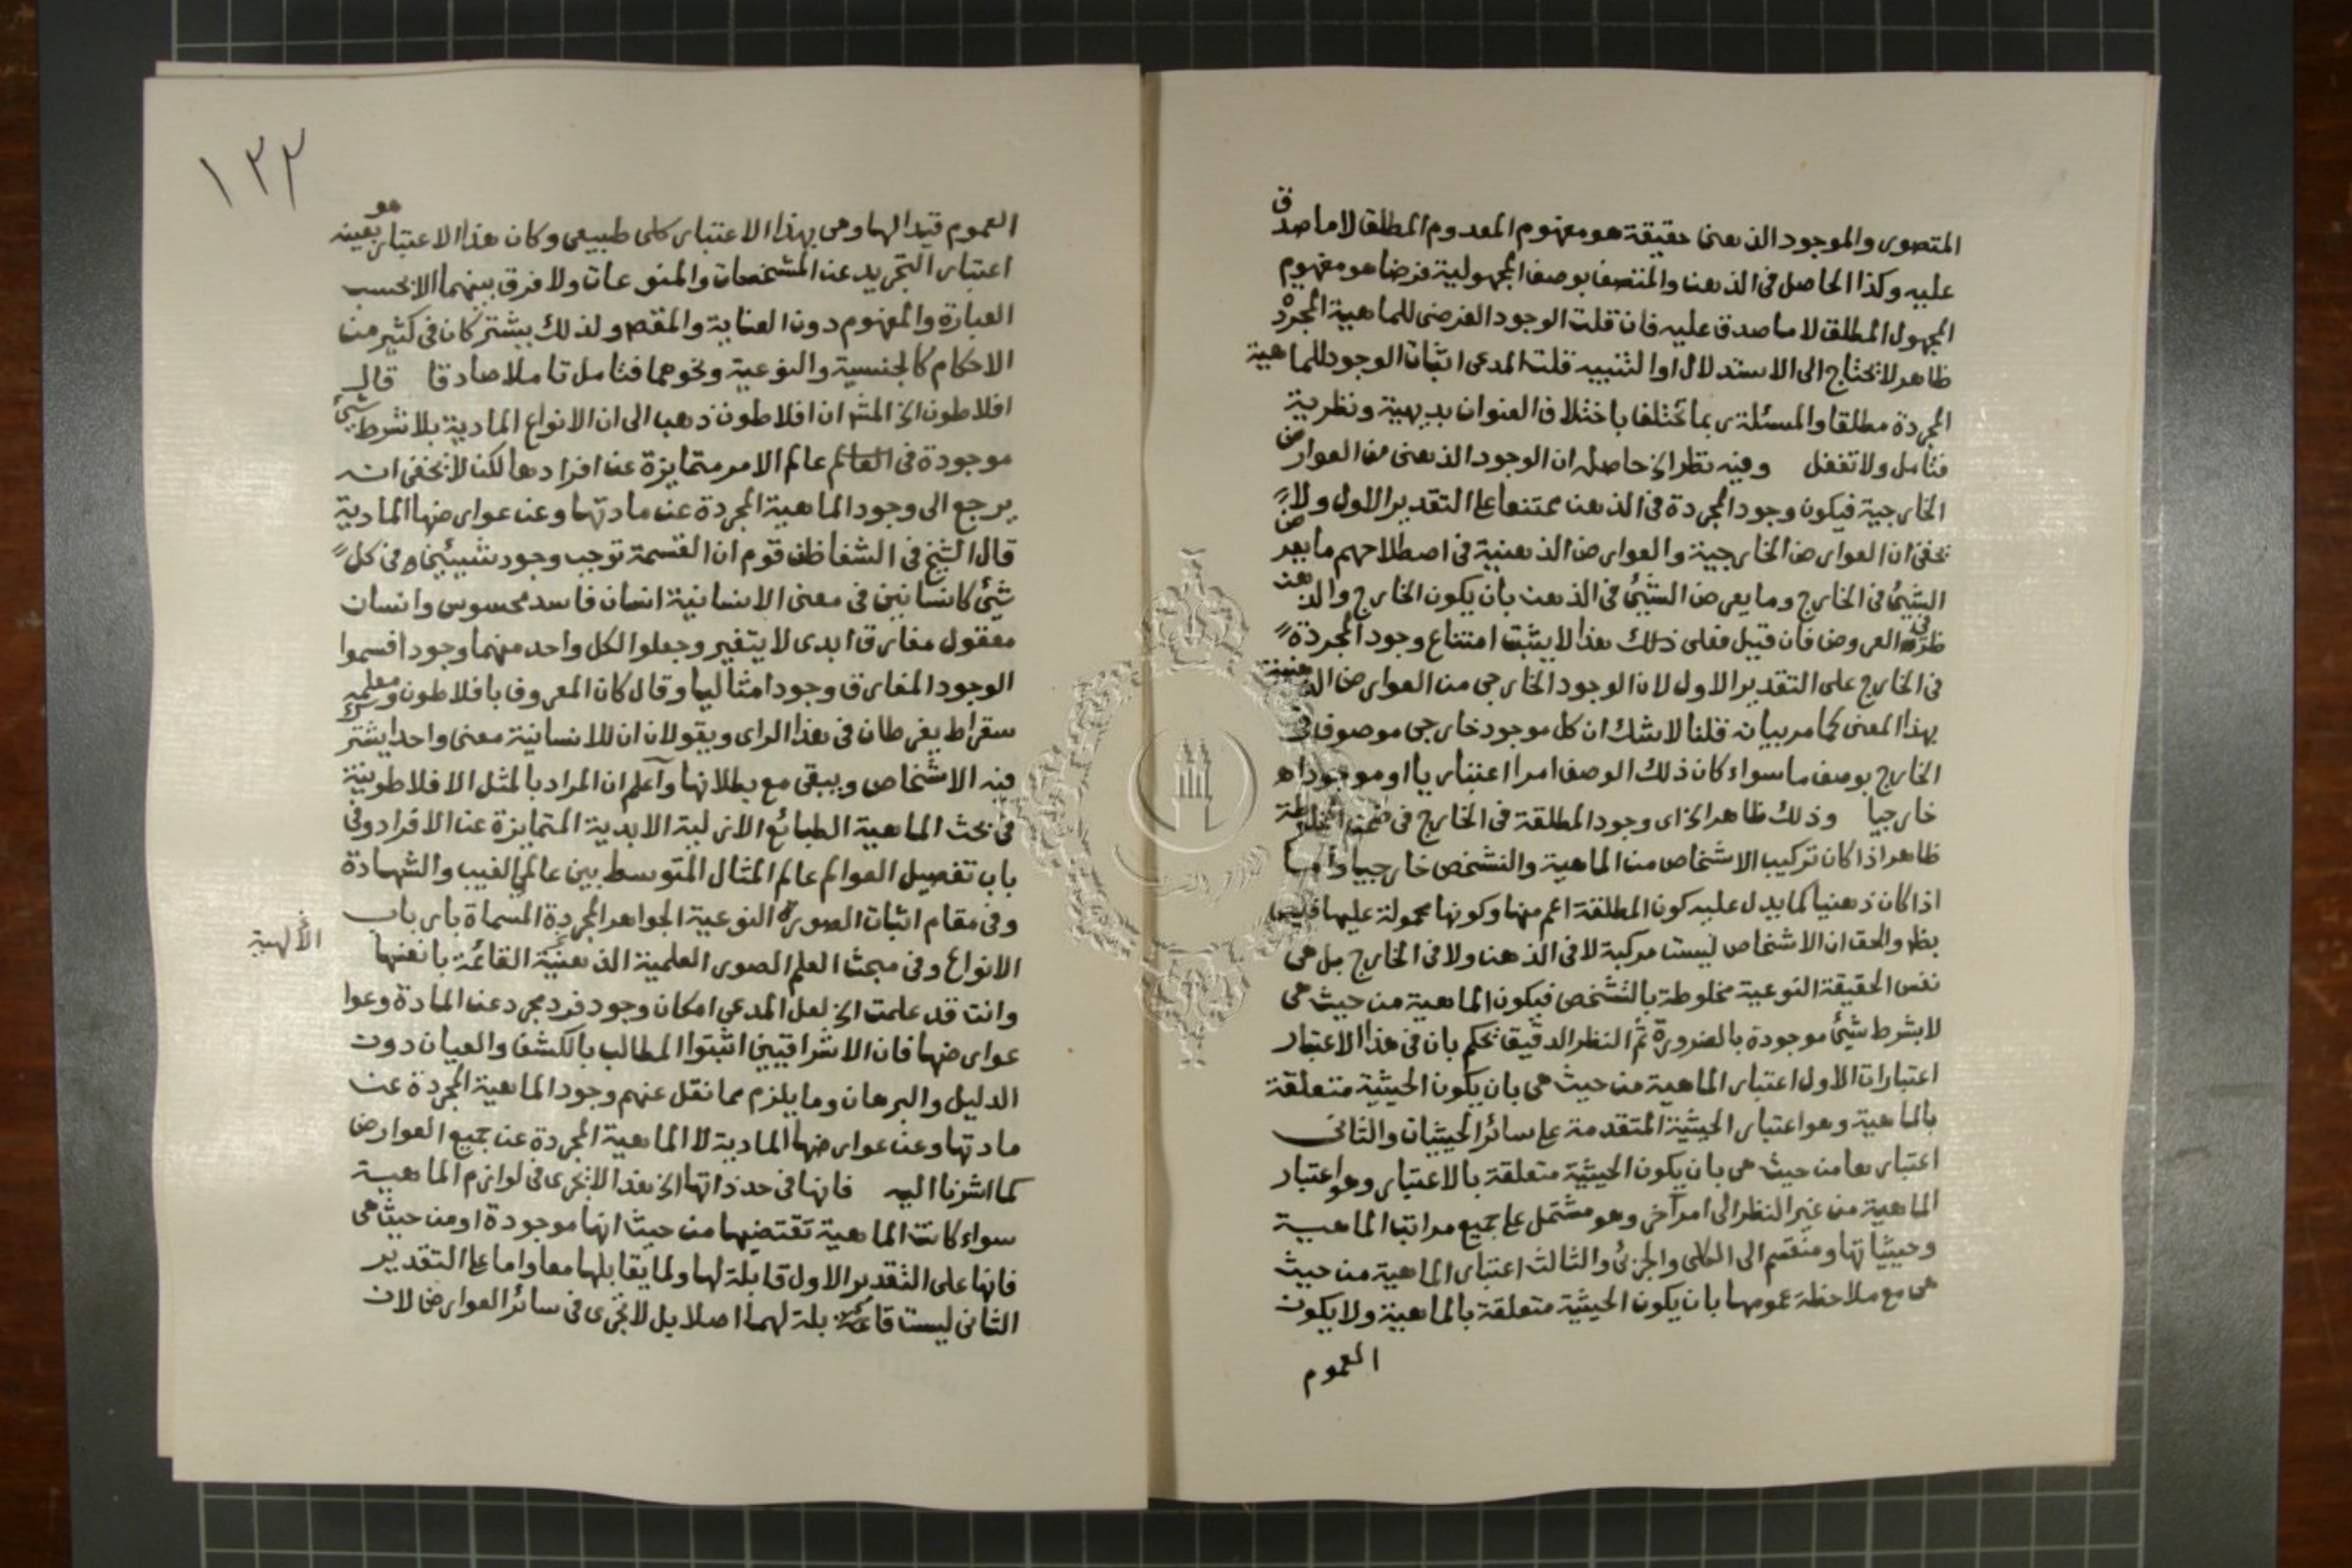 المتصور والموجود الذهنى حقيقة هو مفهوم المعدوم المطلق لا ما صدق
عليه وكذا الحاصل فى الذهن والمتصف بوصف المجهولية فرضا هو مفهوم
المجهول المطلق لا ما صدق عليه فان قلت الوجود الفرضى للماهية المجردة
ظاهر لا تحتاج الى الاستدلال او التنبيه قلت المدعى اثبات الوجود للماهية
المجردة مطلقا والمسئلة ربما تختلف باختلاف العنوان بديهية ونظرية
فتأمل ولا تغفل وفيه نظر الخ حاصله ان الوجود الذهنى من العوارض
الخارجية فيكون وجود المجردة فى الذهن ممتنعا على التقدير الاول ولا
تخفى ان العوارض الخارجية والعوارض الذهنية فى اصطلاحهم ما يعرض
الشيئ فى الخارج وما يعرض الشيئ فى الذهن بان يكون الخارج والذهن
ظرف العروض فان قيل فعلى ذلك هذا لا يثبت امتناع وجود المجردة
فى الخارج على التقدير الاول لان الوجود الخارجى من العوارض الذهنية
بهذا المعنى كما مر بيانه قلنا لا شك ان كل موجود خارجى موصوف فى
الخارج بوصف ما سواء كان ذلك الوصف امرا اعتباريا او موجودا
خارجيا وذلك ظاهر الخ اى وجود المطلقة فى الخارج فى ضمن المخلوطة
ظاهر اذا كان تركيب الاشخاص من الماهية والتشخص خارجيا واما
اذا كان ذهنيا كما يدل عليه كون المطلقة اعم منها وكونها محمولة عليها ففيه
نظر والحق ان الاشخاص ليست مركبة لا فى الذهن ولا فى الخارج بل هى
نفس الحقيقة النوعية مخلوطة بالتشخص فيكون الماهية من حيث هى
لا بشرط شيئ موجودة بالضرورة ثم النظر الدقيق تحكم بان فى هذا الاعتبار
اعتبارات الاول اعتبار الماهية من حيث هى بان يكون الحيثية متعلقة
بالماهية وهو اعتبار الحيثية المتقدمة على سائر الحيثيات والثانى
اعتبارها من حيث هى بان يكون الحيثية متعلقة بالاعتبار وهو اعتبار
الماهية من غير النظر الى امر آخر وهو مشتمل على جميع مراتب الماهية
وحيثياتها ومنقسم الى الكلى والجزئى والثالث اعتبار الماهية من حيث
هى مع ملاحظة عمومها بان يكون الحيثية متعلقة بالماهية ولا يكون
العموم
١٣٣
العموم قيدا لها وهى بهذا الاعتبار كلى طبيعى وكان هذا الاعتبار هو بعينه
اعتبار التجريد عن المشخصات والمنوعات ولا فرق بينهما الا بحسب
العبارة والمفهوم دون العناية والمقصد ولذلك يشتركان فى كثير من
الاحكام كالجنسية والنوعية ونحوهما فتأمل تاملا صادقا قال
افلاطون الخ المشـ ان افلاطون ذهب الى ان الانواع المادية بلا شرط شيئ
موجودة فى عالم الامر متمايزة عن افرادها لكن لا تخفى انه
يرجع الى وجود الماهية المجردة عن مادتها وعن عوارضها المادية
قال الشيخ فى الشفا ظن قوم ان القسمة توجب وجود شيئين فى كل
شيئ كانسانين فى معنى الانسانية انسان فاسد محسوس وانسان
معقول مفارق ابدى لا يتغير وجعلوا لكل واحد منهما وجودا فسموا
الوجود المفارق وجودا مثاليا وقال كان المعروف بافلاطون ومعلمه
سقراط يفرطان فى هذا الراى ويقولان ان للانسانية معنى واحدا يشترك
فيه الاشخاص ويبقى مع بطلانها واعلم ان المراد بالمثل الافلاطونية
فى بحث الماهية الطبائع الازلية الابدية المتمايزة عن الافراد وفى
باب تفصيل العوالم عالم المثال المتوسط بين عالمى الغيب والشهادة
وفى مقام اثبات الصورة النوعية الجواهر المجردة المسماة بارباب
الانواع وفى مبحث العلم الصور العلمية الذهنية القائمة بانفسها
الالهية
وانت قد علمت الخ لعل المدعى امكان وجود فرد مجرد عن المادة وعوا
عوارضها فان الاشراقيين اثبتوا المطالب بالكشف والعيان دون
الدليل والبرهان وما يلزم مما نقل عنهم وجود الماهية المجردة عن
مادتها وعن عوارضها المادية لا الماهية المجردة عن جميع العوارض
كما اشرنا اليه فانها فى حد ذاتها الخ هذا لا تجرى فى لوازم الماهية
سواء كانت الماهية تقتضيها من حيث انها موجودة او من حيث هى
فانها على التقدير الاول قابلة لها ولما يقابلها معا واما على التقدير
الثانى ليست قابلة لهما اصلا بل لا تجرى فى سائر العوارض لان